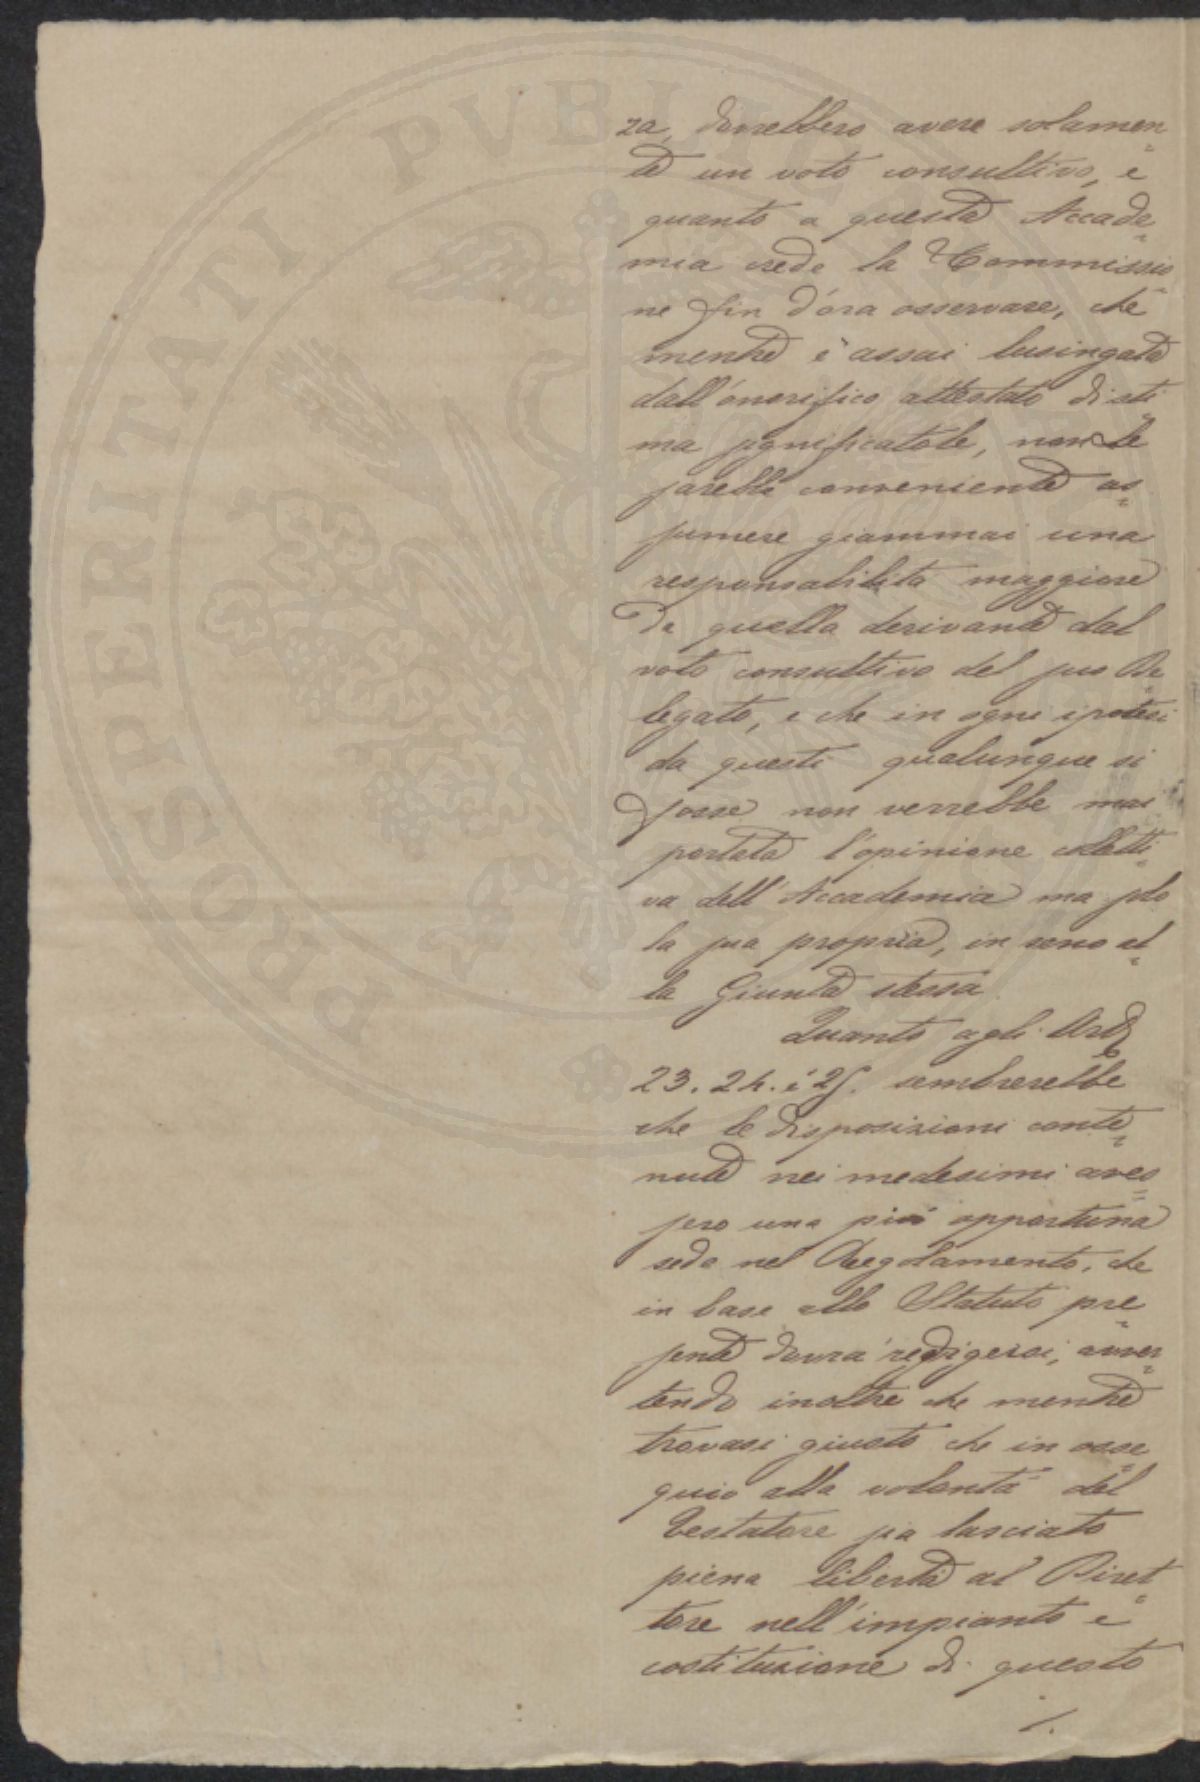 za, dovrebbero avere solamen=
te un voto consultivo, e
quanto a questa Accade=
mia crede la Commissio=
ne fin d'ora osservare, che
mentre è assai lusingata
dall'onorifico attestato di sti=
ma significatole, non le
sarebbe conveniente as=
sumere giammai una
responsabilità maggiore
di quella derivante dal
voto consultivo del suo De=
legato, e che in ogni ipotesi
da questi qualunque si
fosse non verrebbe mai
portata l'opinione colletti=
va dell'Accademia ma solo
la sua propria, in seno al=
la Giunta stessa.
Quanto agli Art.
23. 24. e 25. sembrerebbe
che le disposizioni conte=
nute nei medesimi aves=
sero una più opportuna
sede nel Regolamento, che
in base allo Statuto pre=
sente dovrà redigersi, avver=
tendo inoltre che mentre
trovasi giusto che in osse=
quio alla volontà del
Testatore sia lasciato
piena libertà al Diret=
tore nell'impianto e
costituzione di questo
./.
PROSPERITATI PVBLIC